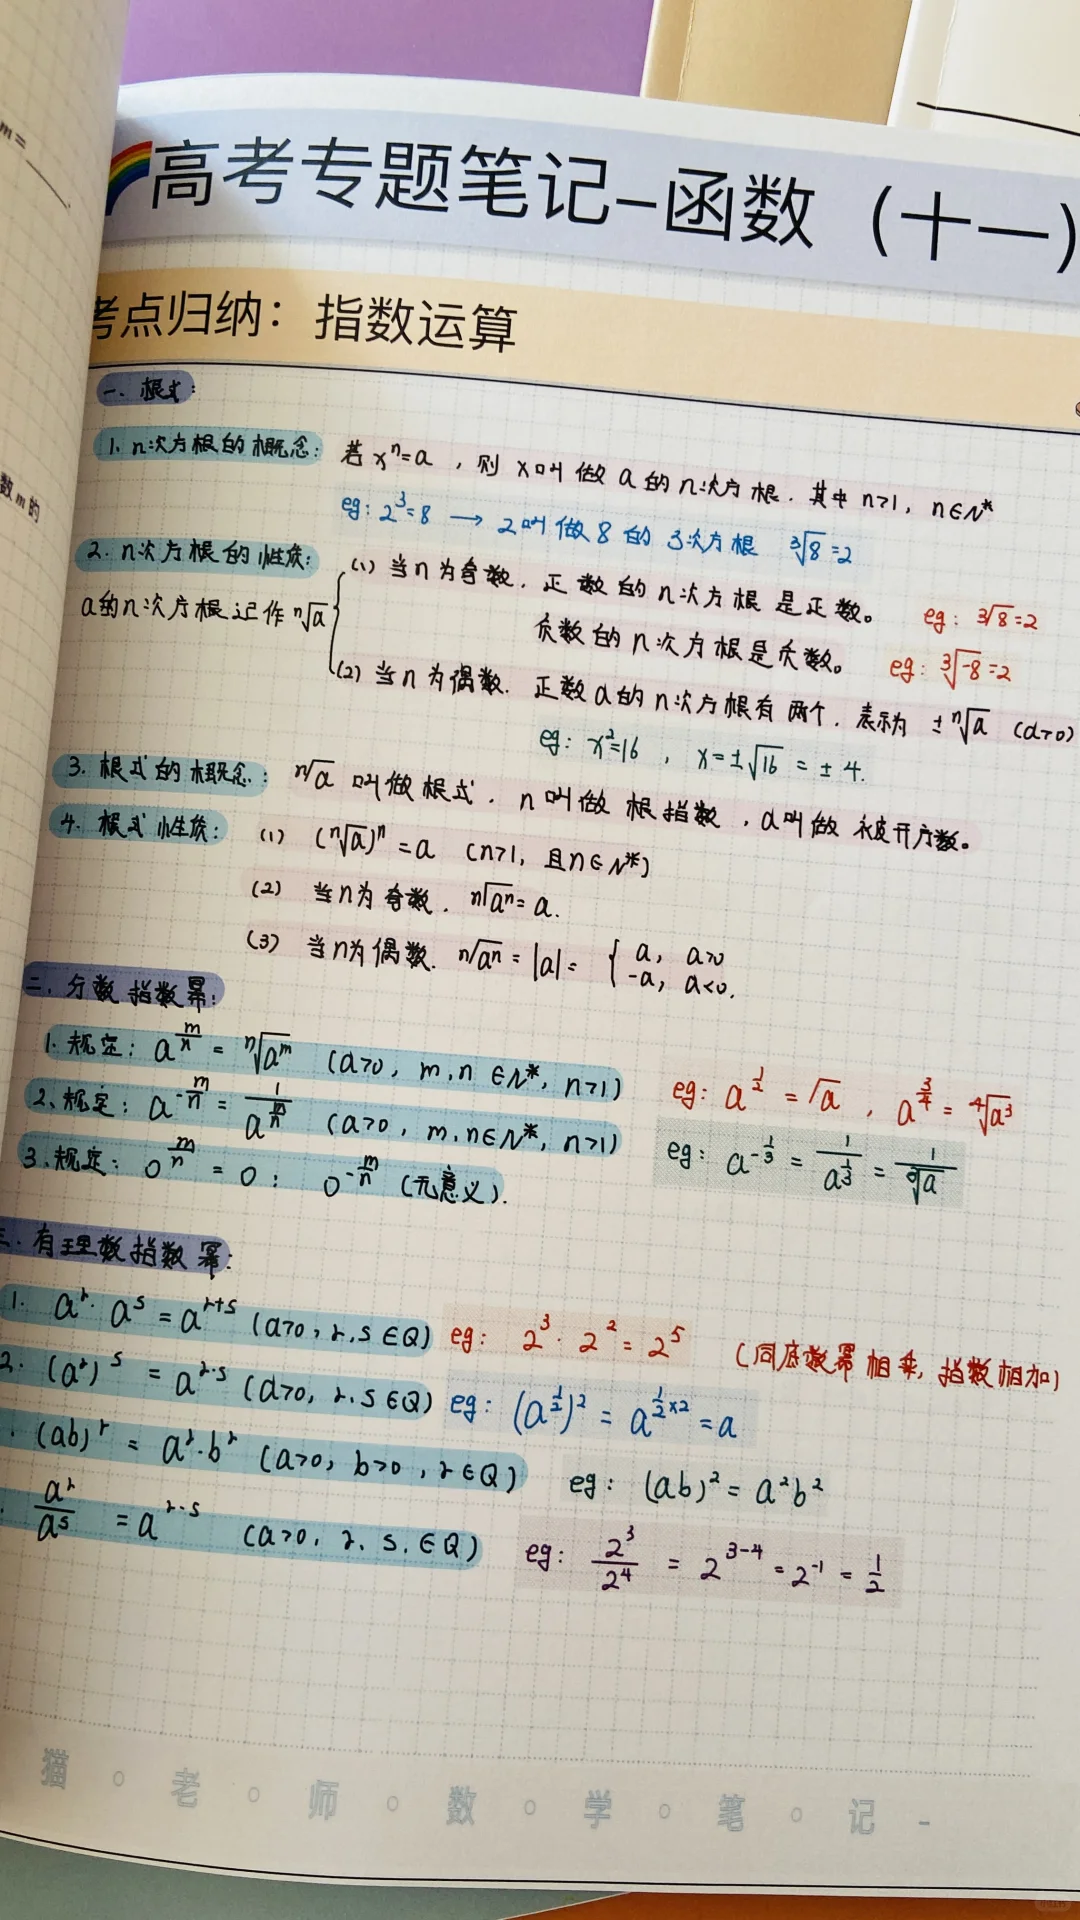 m=
数m的
高考专题笔记-函数（十一）
考点归纳：指数运算
一、根式：
1. n次方根的概念： 若xⁿ=a，则x叫做a的n次方根．其中n>1，n∈N*
eg：2³=8 → 2叫做8的3次方根 ³√8=2
2. n次方根的性质：
a的n次方根记作ⁿ√a
(1) 当n为奇数．正数的n次方根是正数。 eg：³√8=2
负数的n次方根是负数。 eg：³√-8=2
(2) 当n为偶数．正数a的n次方根有两个．表示为±ⁿ√a (a>0)
eg：x²=16，x=±√16=±4.
3. 根式的概念： ⁿ√a叫做根式．n叫做根指数，a叫做被开方数。
4. 根式性质： (1) (ⁿ√a)ⁿ=a (n>1，且n∈N*)
(2) 当n为奇数．ⁿ√aⁿ=a.
(3) 当n为偶数．ⁿ√aⁿ=|a|={ a, a>0
-a, a<0.
二、分数指数幂：
1. 规定：a^(m/n)=ⁿ√a^m (a>0，m,n∈N*，n>1) eg：a^(1/2)=√a，a^(3/4)=⁴√a³
2. 规定：a^(-m/n)=1/a^(m/n) (a>0，m,n∈N*，n>1) eg：a^(-1/3)=1/a^(1/3)=1/³√a
3. 规定：0^(m/n)=0； 0^(-m/n) (无意义).
三、有理数指数幂：
1. a^r·a^s=a^(r+s) (a>0，r,s∈Q) eg：2³·2²=2⁵ (同底数幂相乘，指数相加)
2. (a^r)^s=a^(r·s) (a>0，r.s∈Q) eg：(a^(1/2))²=a^(1/2×2)=a
. (ab)^r=a^r·b^r (a>0，b>0，r∈Q) eg：(ab)²=a²b²
. a^r/a^s=a^(r-s) (a>0，r,s,∈Q) eg：2³/2⁴=2^(3-4)=2^(-1)=1/2
猫。老。师。数。学。笔。记-